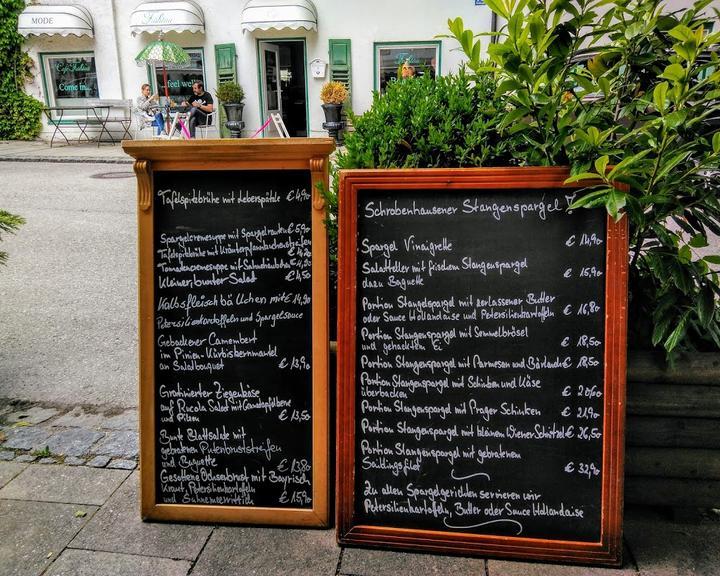 MODE
Come in...
feel well
Tafelspitzbrühe mit Leberspätzle € 4,90
Spargelcremesuppe mit Spargelrauten € 5,90
Tafelspitzbrühe mit Kräuterpfannkuchenstreifen € 4,20
Tomatencremesuppe mit Sahnehäubchen € 4,90
Kleiner bunter Salad € 4,50
Kalbsfleisch mit € 14,90
Petersilienkartoffeln und Spargelsauce
Gebackener Camembert
im Pinien-Kürbiskernmantel
an Saladbouquet € 13,90
Gratinierter Ziegenkäse
auf Rucola Salad mit
und Pilzen € 13,50
Bunte Blattsalade mit
gebratenen Putenbruststreifen
und Baguette € 13,80
Gesottene Ochsenbrust mit Bayrisch
Kraut, Petersilienkartoffeln
und Sahnemeerrettich € 15,90
Schrobenhausener Stangenspargel !
Spargel Vinaigrette € 14,90
Salatteller mit frischem Stangenspargel
dazu Baguette € 15,90
Portion Stangenspargel mit zerlassener Butter
oder Sauce Hollandaise und Petersilienkartoffeln € 16,80
Portion Stangenspargel mit Semmelbrösel
und gehacktem Ei € 18,50
Portion Stangenspargel mit Parmesan und Bärlauch € 18,50
Portion Stangenspargel mit Schinken und Käse
überbacken € 20,00
Portion Stangenspargel mit Prager Schinken € 21,90
Portion Stangenspargel mit kleinem Wiener Schnitzel € 26,50
Portion Stangenspargel mit gebratenem
Saiblingsfilet € 32,90
Zu allen Spargelgerichten servieren wir
Petersilienkartoffeln, Butter oder Sauce Hollandaise